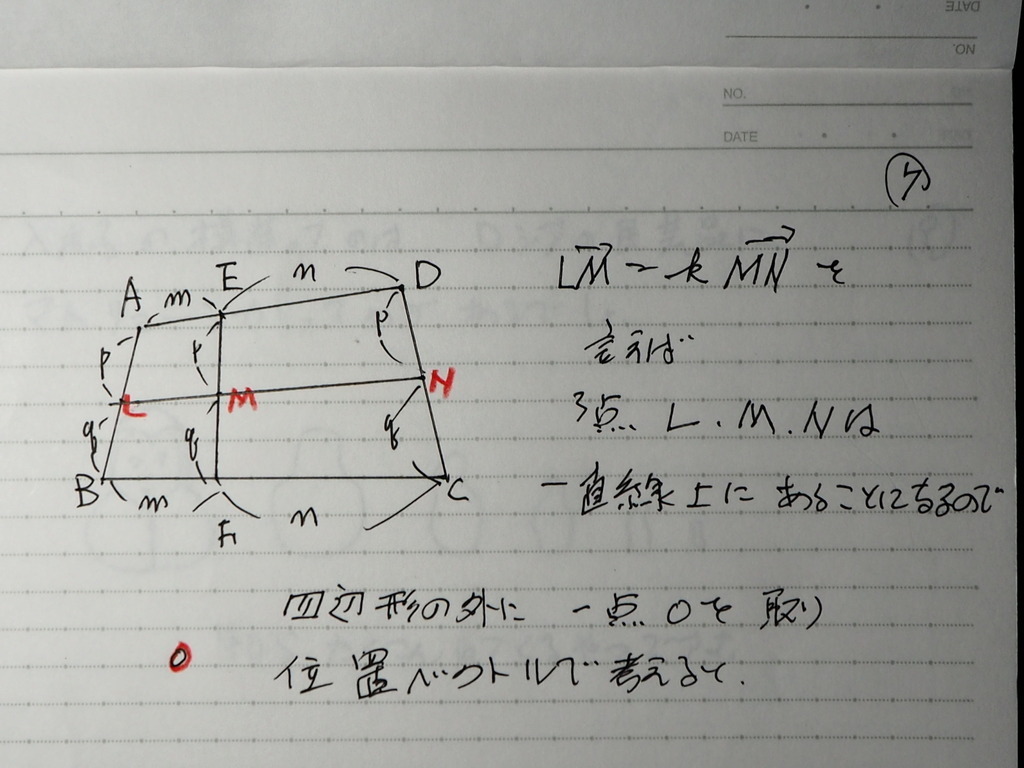 DATE
NO.
NO.
DATE
A m E n D
p p p
L M N
q q q
B m F n C
LM = k MN を
言えば
3点 L.M.Nは
一直線上にあることになるので
四辺形の外に 一点Oを取り
O
位置ベクトルで考えると.